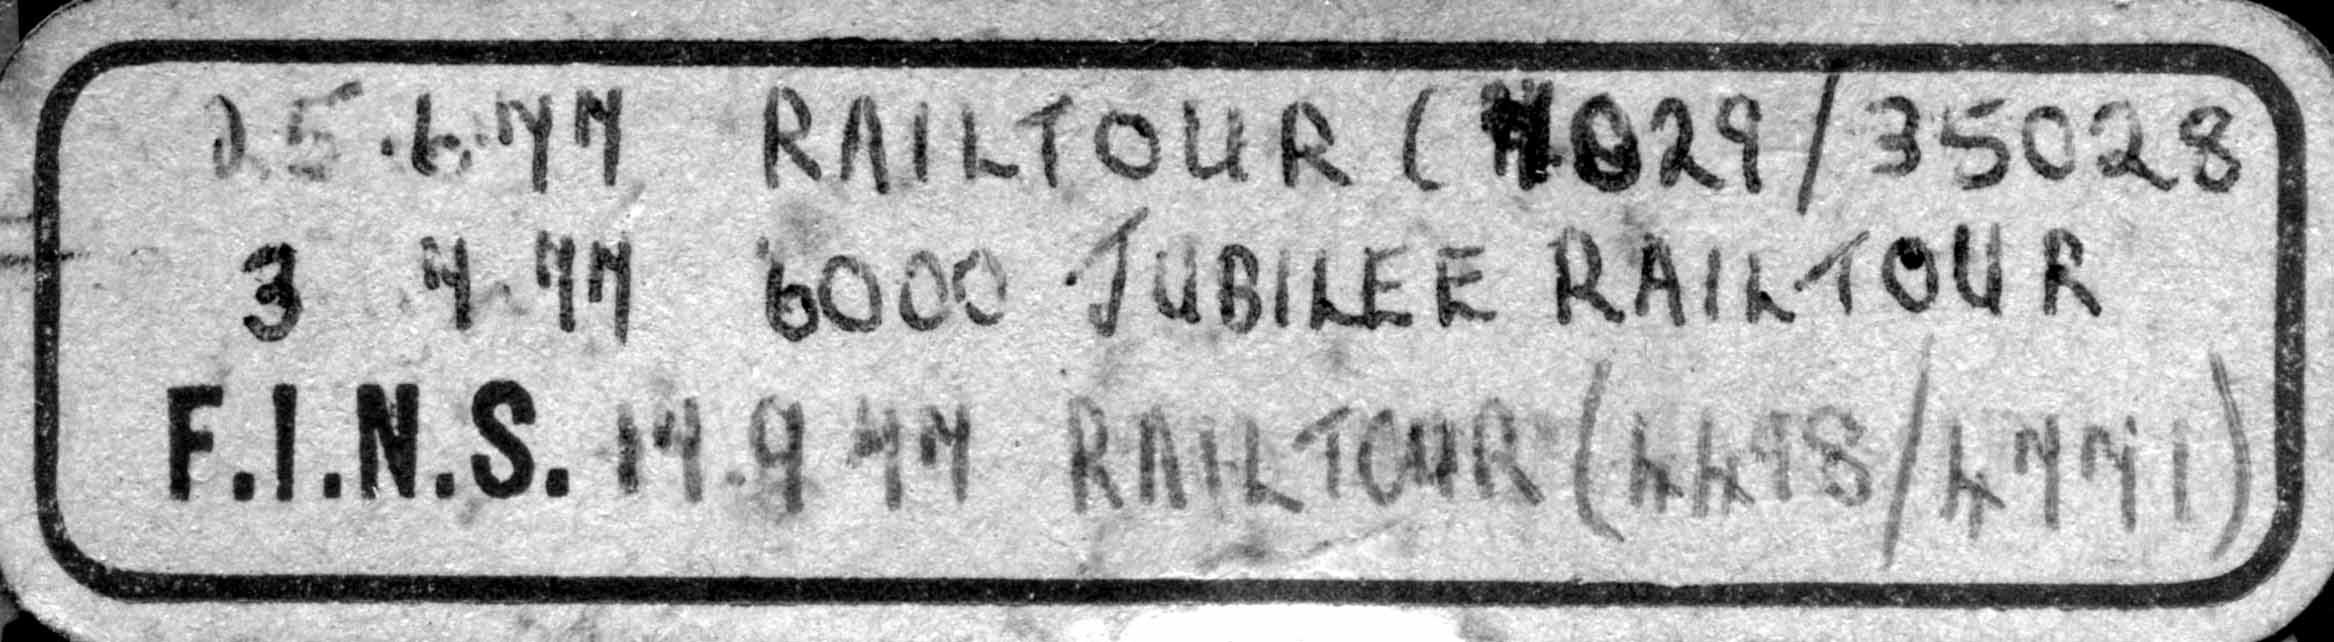 25.6.77 RAILTOUR (7029/35028
3 7.77 6000 JUBILEE RAILTOUR
F.I.N.S. 17.9 77 RAILTOUR (4498/4771)